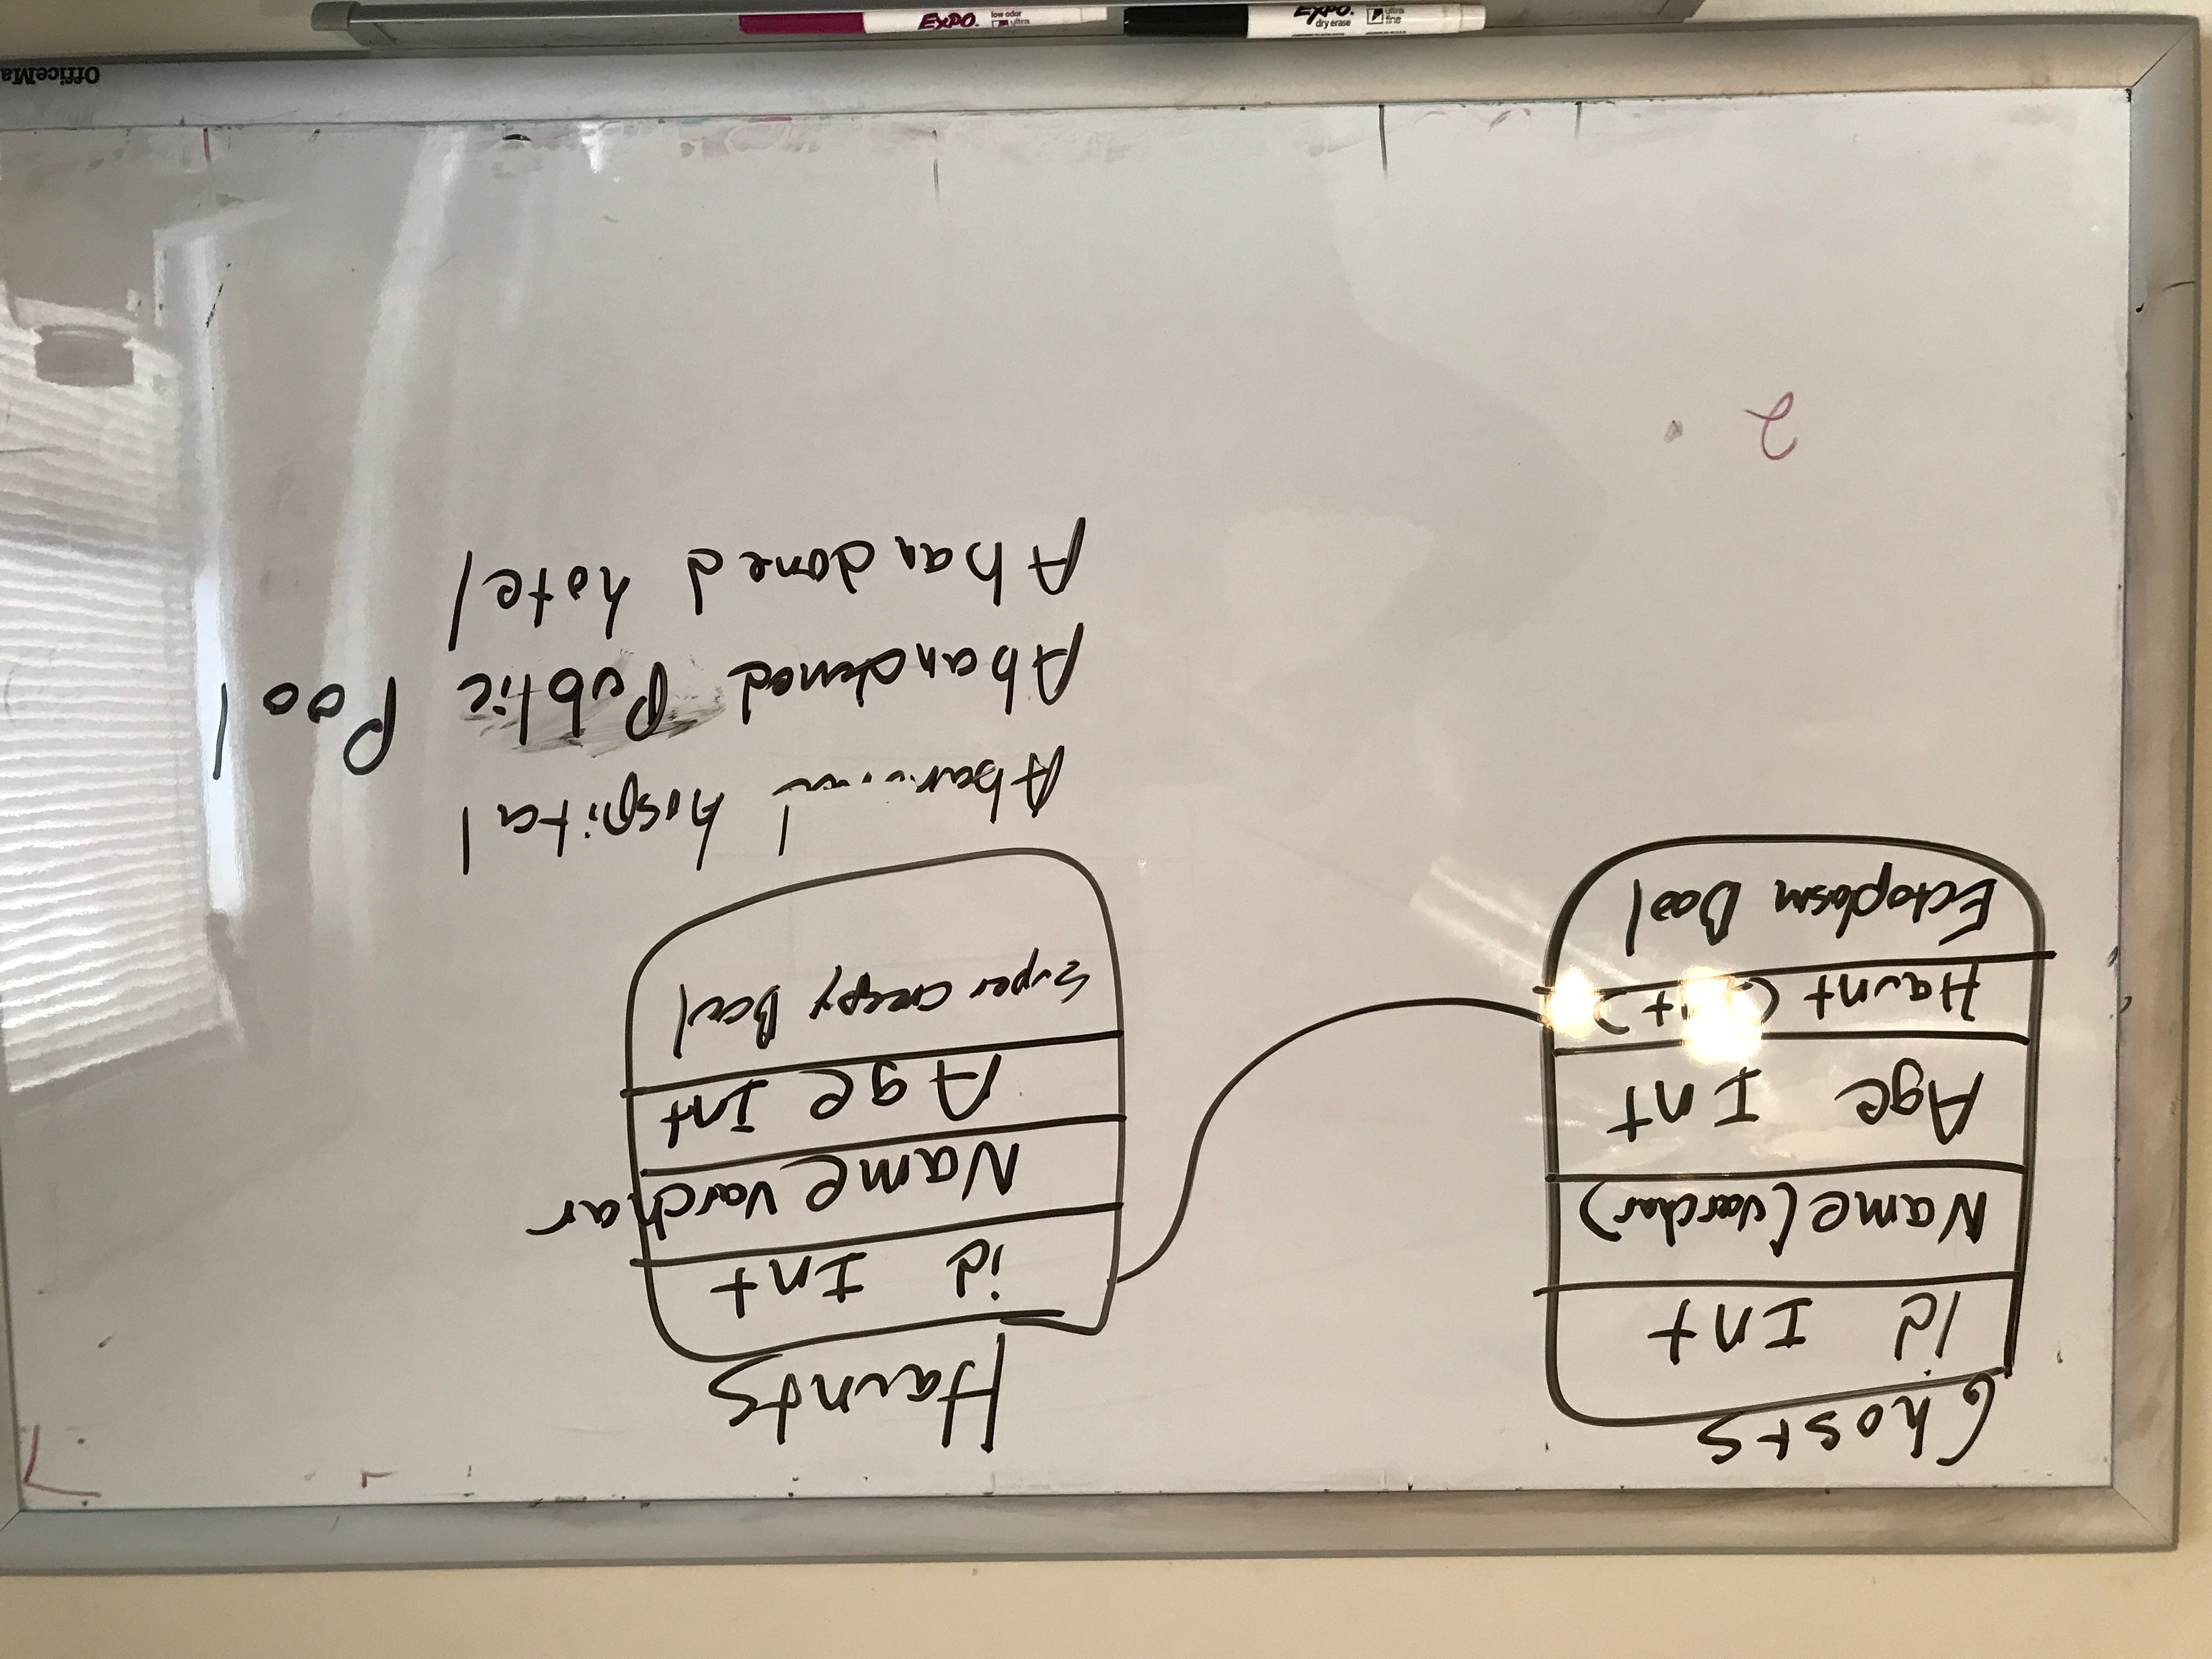 Ghosts
id Int
Name (varchar)
Age Int
Haunt
Ectoplasm Bool
Haunts
id Int
Name varchar
Age Int
Super creepy Bool
hospital
Abandoned Public Pool
Abandoned hotel
2
OfficeMa
EXPO
dry erase
ultra fine
EXPO
low odor